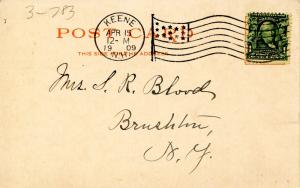 3-783
KEENE
POST CARD
APR 15
12-M
THIS SIDE FOR THE ADDRESS
19 09
N.H.
Mrs. S. R. Blood
Brushton,
N.Y.